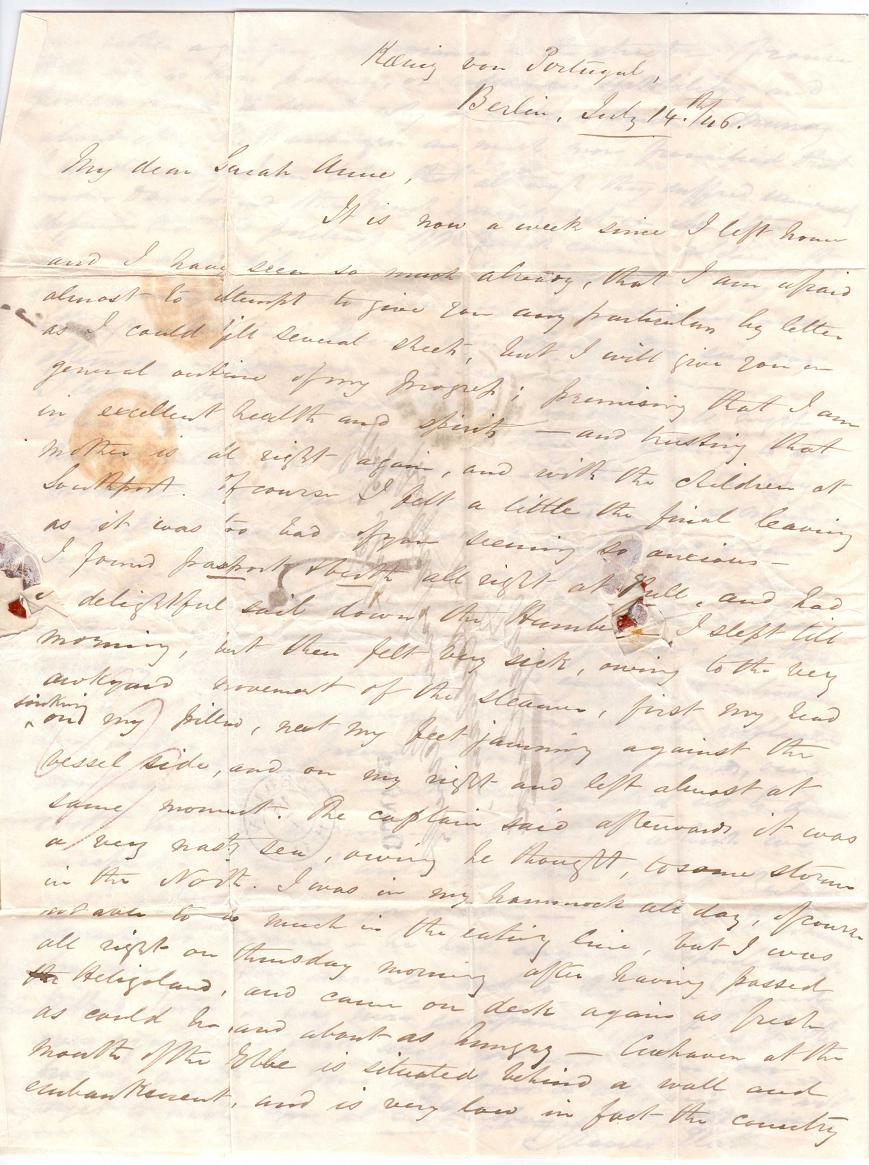 Kœnig von Portugal,
Berlin, July 14.th/46.
My dear Sarah Anne,
It is now a week since I left home
and I have seen so much already, that I am afraid
almost to attempt to give you any particulars by letter
as I could fill several sheets, but I will give you a
general outline of my progress; premising that I am
in excellent health and spirits — and trusting that
mother is all right again, and with the children at
Southport. Of course I felt a little the final leaving
as it was too bad of you seeming so anxious —
I found passport & berth all right at Hull, and had
a delightful sail down the Humber I slept till
morning, but then felt very sick, owing to the very
awkward movement of the steamer, first my head
sinking
on my pillow, next my feet jamming against the
vessel side, and on my right and left almost at
same moment. The captain said afterwards it was
a very nasty sea, owing he thought, to some storm
in the North. I was in my hammock all day, of course
not able to do much in the eating line, but I was
all right on thursday morning after having passed
Heligoland, and came on deck again as fresh
as could be, and about as hungry — Cuxhaven at the
mouth of the Elbe is situated behind a wall and
embankment, and is very low in fact the country